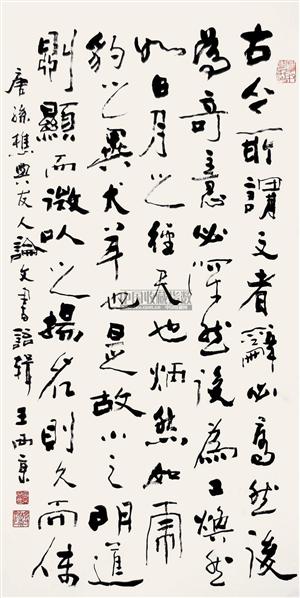 古今所謂文者辭必高然後
為奇意必深然後為工煥然
如日月之經天也炳然如虎
豹之異犬羊也是故以之明道
則顯而微以之揚名則久而传
唐孫樵與友人論文書語輯 王